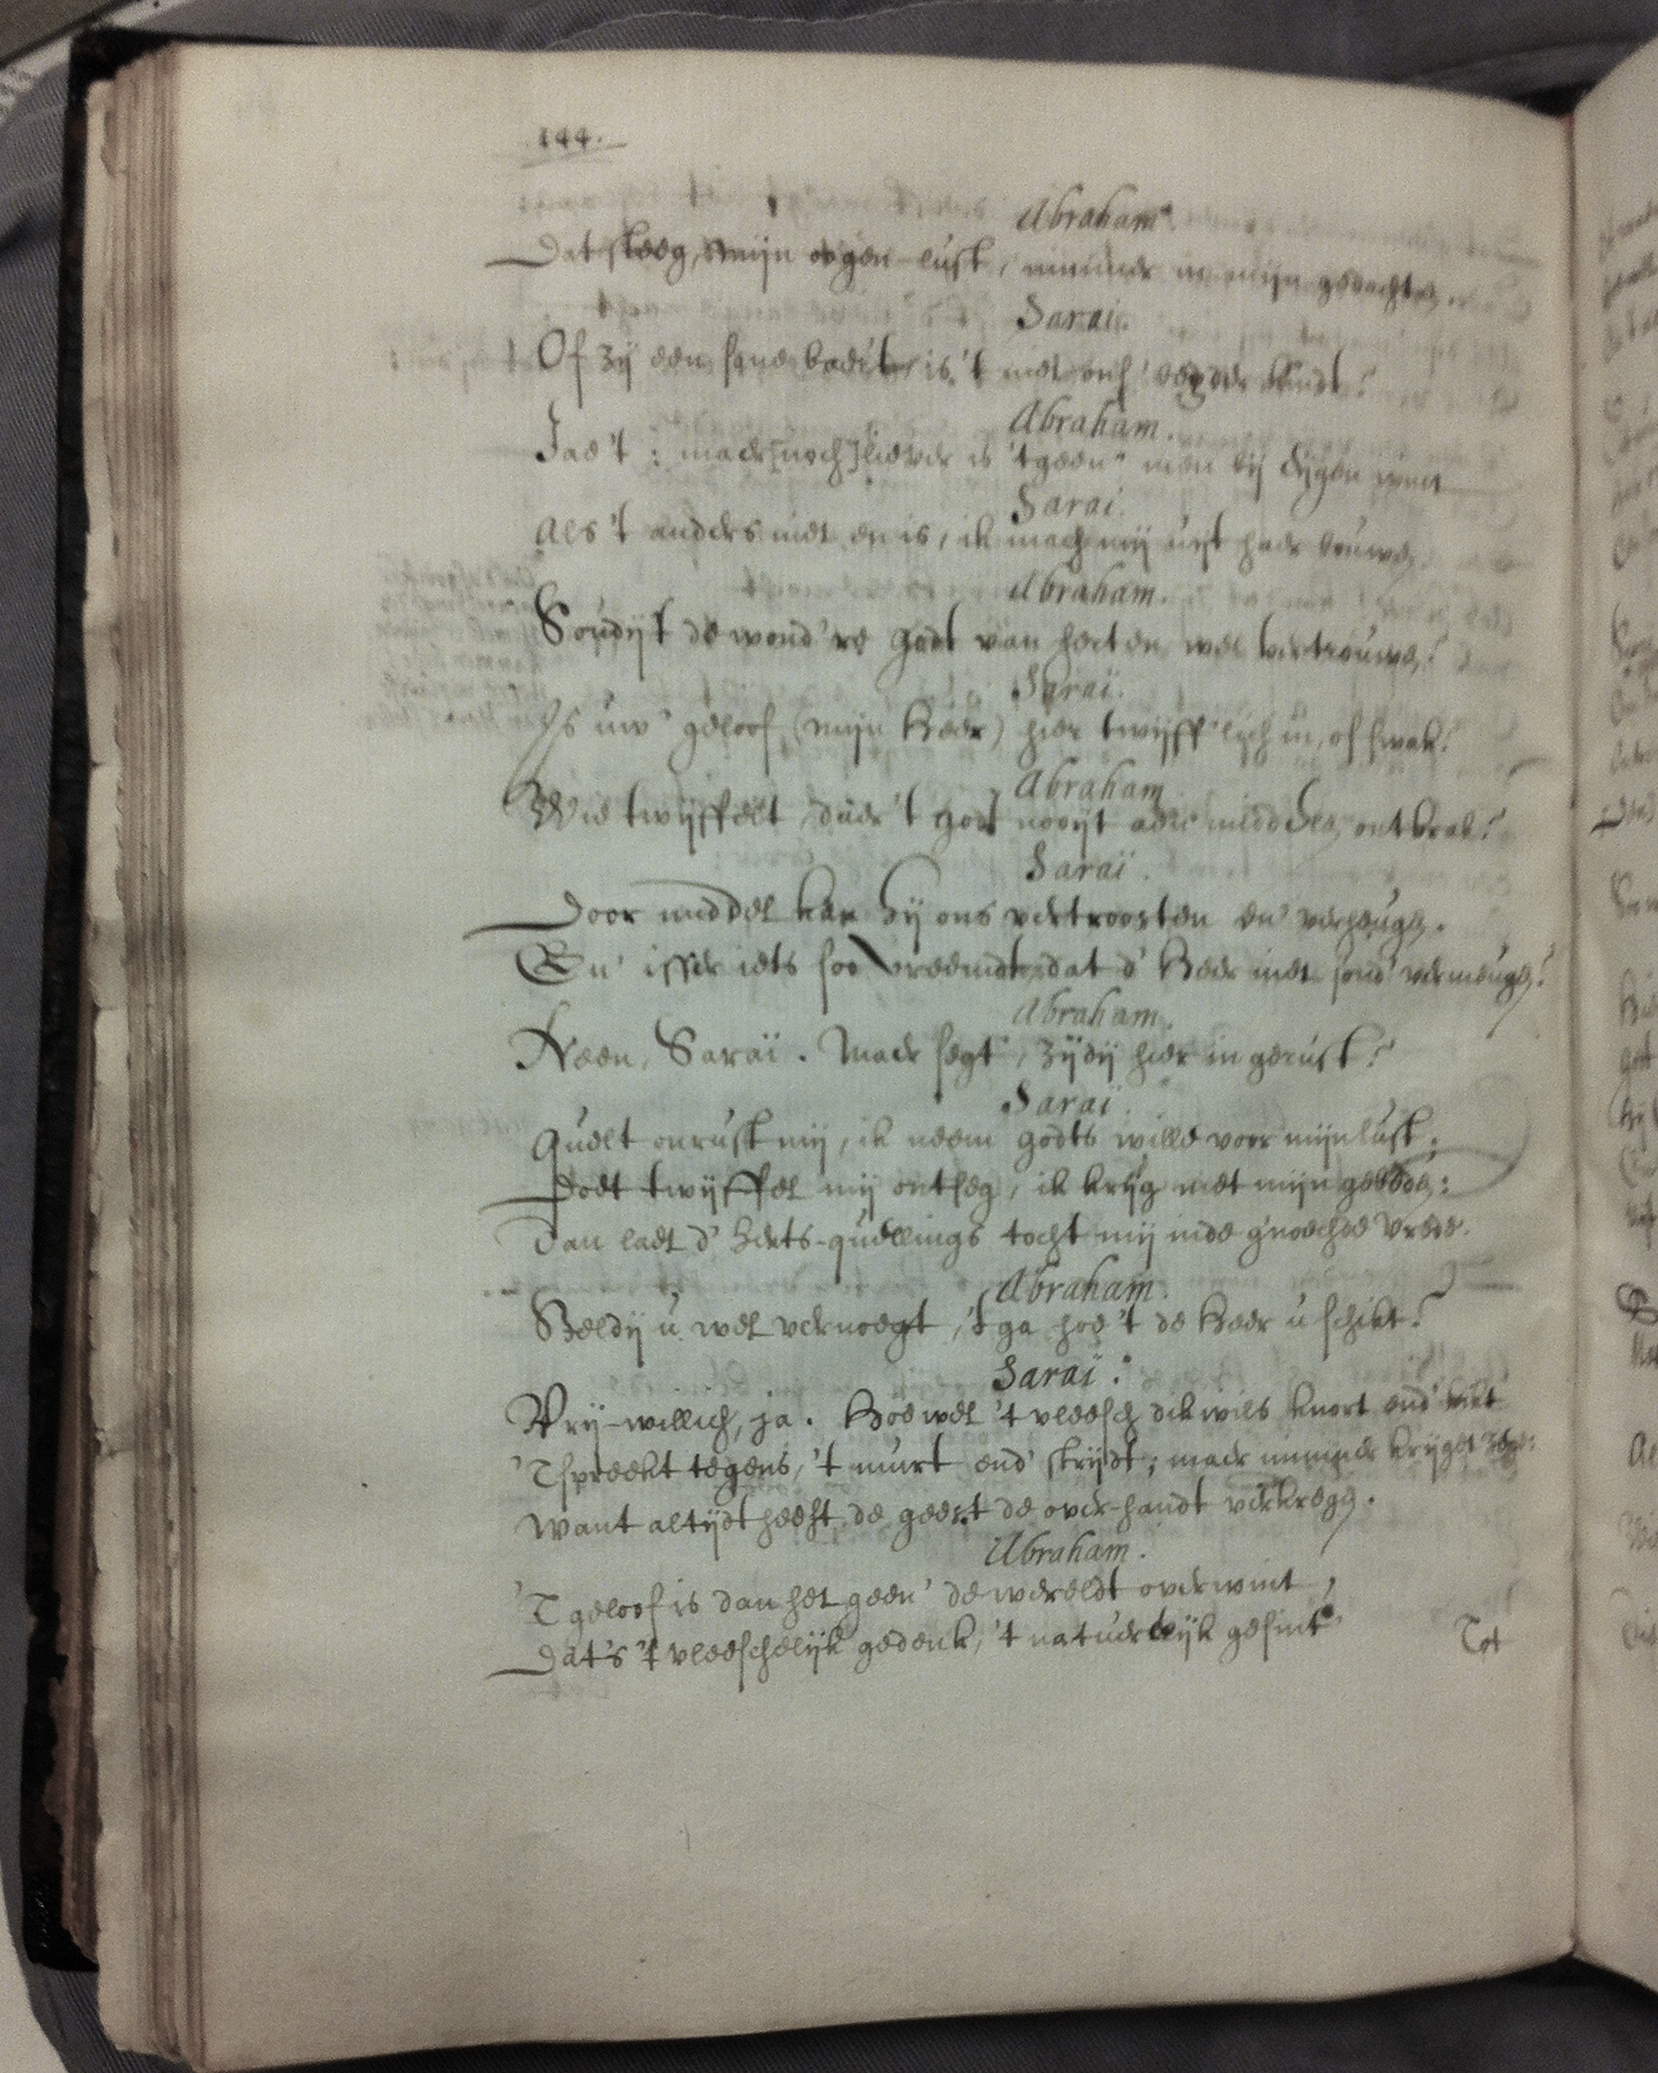 144.
Abraham.
Dat sleeg, mijn oogen-lust, nimmer in mijn gedachten.
Sarai.
Of zij een baert, is 't niet ons kindt?
Abraham.
Jae 't: maer [noch] liever is 't geen men bij eijgen wint
Sarai.
Als 't anders niet en is, ik mach mij uijt haer bouwen,
Abraham.
Soudij't de wond're Godt van herten wel vertrouwen?
Saraï.
Is uw' geloof (mijn Heer) hier twijff'lich in, of swak?
Abraham
Wie twijffelt, daer 't Godt nooijt aen middelen ontbrak?
Saraï.
Door middel kan hij ons vertroosten en' verheugen.
En' isser iets soo vreemdt, dat d' Heer niet soud' vermeugen?
Abraham.
Neen, Saraï. Maer segt, zijdij hier in gerust?
Saraï.
Quelt onrust mij, ik neem Godts wille voor mijn lust;
Doet twijffel mij ontseg, ik krijg met mijn gebeden:
Dan laet d' herts-quellings tocht mij inde g'noechde vrede.
Abraham.
Heldij u wel vernoegt, 't ga hoe 't de Heer u schikt?
Saraï.
Vrij-willich, ja. Hoewel 't vleesch dikwils knort end'
'T spreekt tegens, 't murt end' strijdt; maer nimmer krijget zege:
Want altijdt heeft de geest de over-handt verkregen.
Abraham.
'T geloof is dan het geen' de wereldt overwint,
Dat's 't vleeschelijk gedenk, 't natuerlijk gesint
Tot